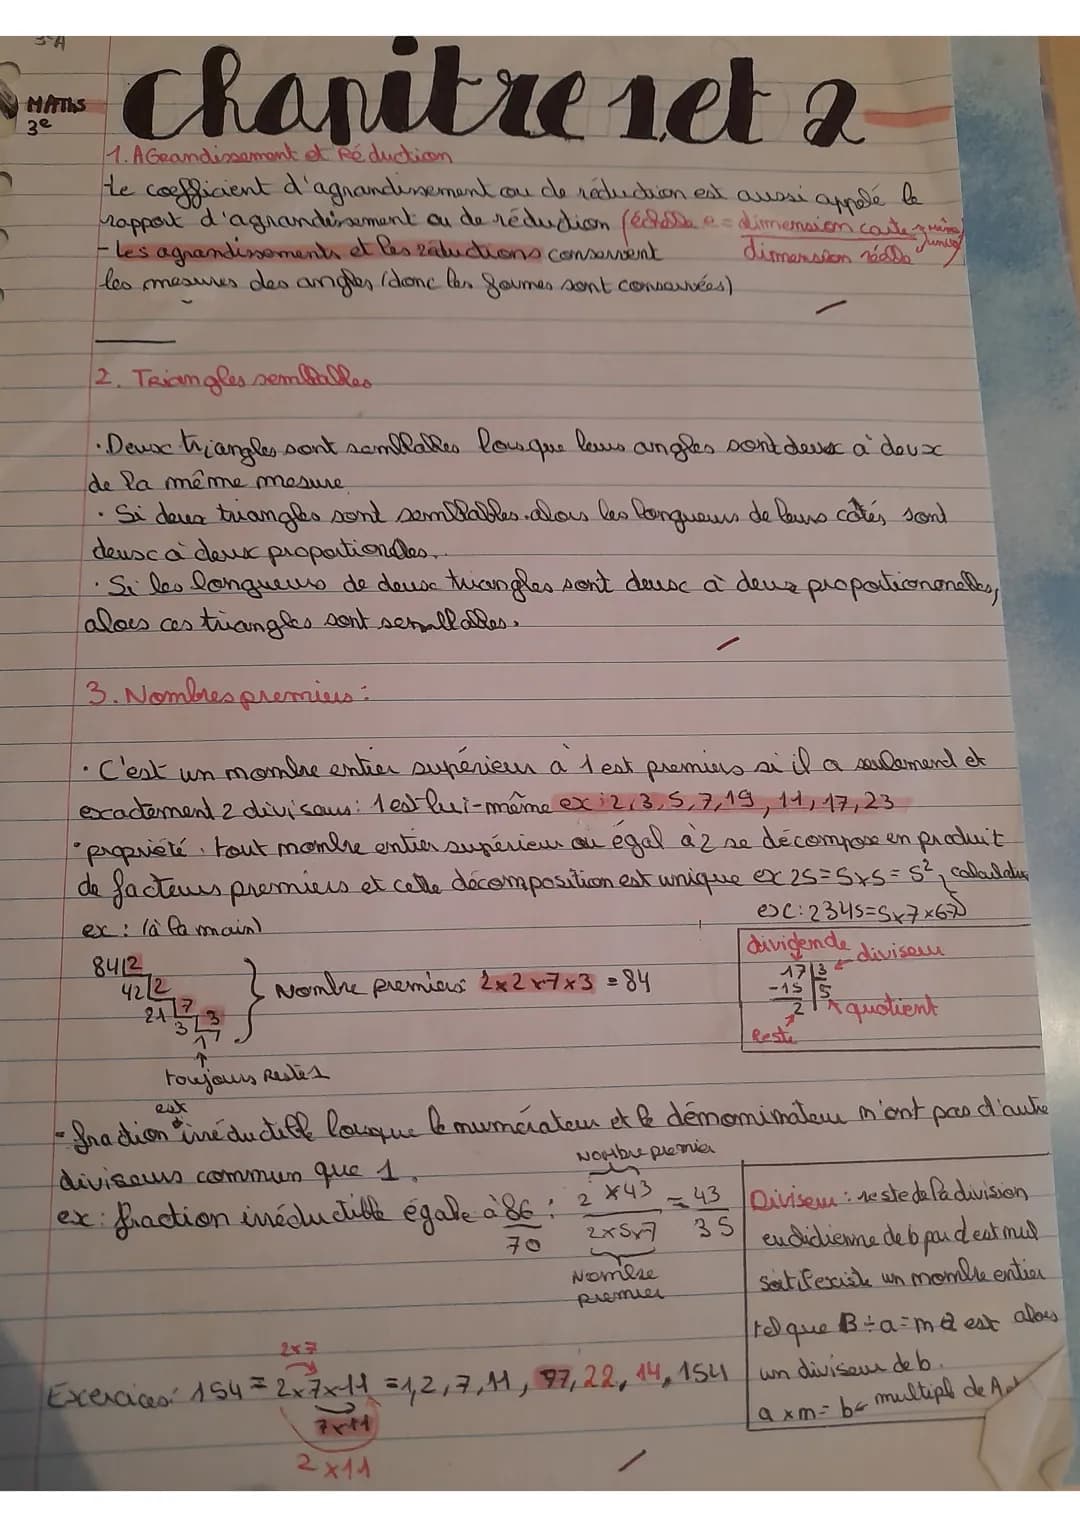 3°A
MATHS
3e
Chapitre 1 et 2
1. AGrandissement et Réduction
Le coefficient d'agrandissement ou de réduction est aussi appelé le
rapport d'agrandissement ou de réduction (échelle e = dimension carte
dimension réelle
- Les agrandissements et les réductions conservent
les mesures des angles (donc les formes sont conservées)
2. Triangles semblables
· Deux triangles sont semblables lorsque leurs angles sont deux à deux
de la même mesure
· Si deux triangles sont semblables alors les longueurs de leurs côtés sont
deux à deux proportionelles.
· Si les longueurs de deux triangles sont deux à deux proportionenelles,
alors ces triangles sont semblables.
3. Nombres premiers :
· C'est un nombre entier supérieur à 1 est premiers si il a seulement et
exactement 2 diviseurs : 1 est lui-même ex : 2, 3, 5, 7, 19, 11, 17, 23
· propriété : tout nombre entier supérieur ou égal à 2 se décompose en produit
de facteurs premiers et cette décomposition est unique ex 25 = 5x5 = 5²,
ex : 2345 = 5x7x67
ex : (à la main)
84 2
42 2
21 7
3 3
1
Nombre premiers 2x2x7x3 = 84
toujours Reste 1
dividende
diviseur
17 3
-15 5
2
quotient
Reste
- fraction est irréductible lorsque le numérateur et le dénominateur n'ont pas d'autre
diviseurs commun que 1.
ex : fraction irréductible égale à 86/70 : 2 x43 / 2x5x7 = 43/35
Nombre premier
Nombre
premier
Diviseur : reste de la division
euclidienne de b par d est nul
soit il existe un nombre entier
tel que B ÷ a = m a est alors
un diviseur de b.
a x m = b ← multiple de A
Exercices : 154 = 2x7x11 = 1, 2, 7, 11, 77, 22, 14, 154
2x7
7x11
2x11